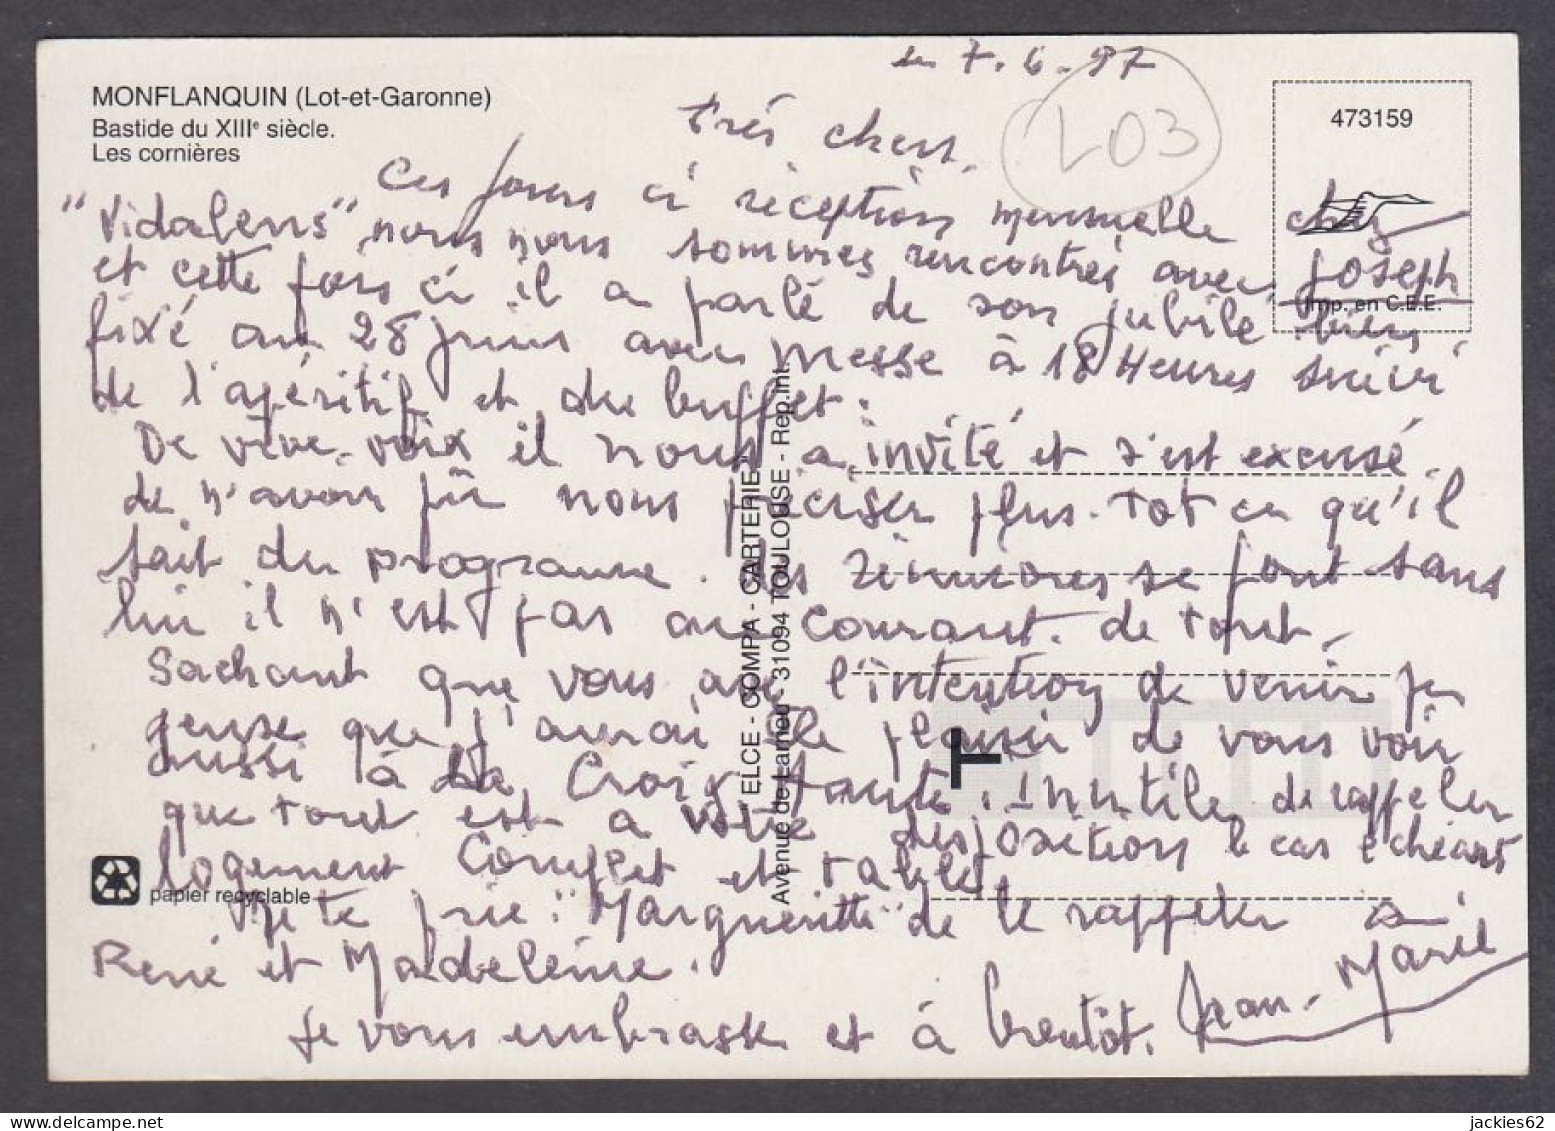 MONFLANQUIN (Lot-et-Garonne)
Bastide du XIIIᵉ siècle.
Les cornières
le 7.6.97
L03
473159
Imp. en C.E.E.
très chers,
Ces jours ci réception mensuelle chez
"Vidalens", nous nous sommes rencontrés avec Joseph
et cette fois ci il a parlé de son jubilé bien
fixé au 28 juin avec messe à 18 Heures suivi
de l'apéritif et du buffet.
De vive-voix il nous a invité et s'est excusé
de n'avoir pû nous préciser plus-tot ce qu'il
sait du programme. les réunions se font sans
lui il n'est pas au courant de tout.
Sachant que vous avez l'intention de venir je
pense que j'aurai le plaisir de vous voir
aussi à la Croix haute. Inutile de rappeler
que tout est a votre disposition le cas échéant
logement Complet et table
Je te prie "Marguerite" de le rappeler à
René et Madeleine.
Je vous embrasse et à bientôt. Jean-Marie
ELCE - COMPA - CARTERIE
Avenue de Larrieu - 31094 TOULOUSE - Rep.int.
T
papier recyclable
jackies62